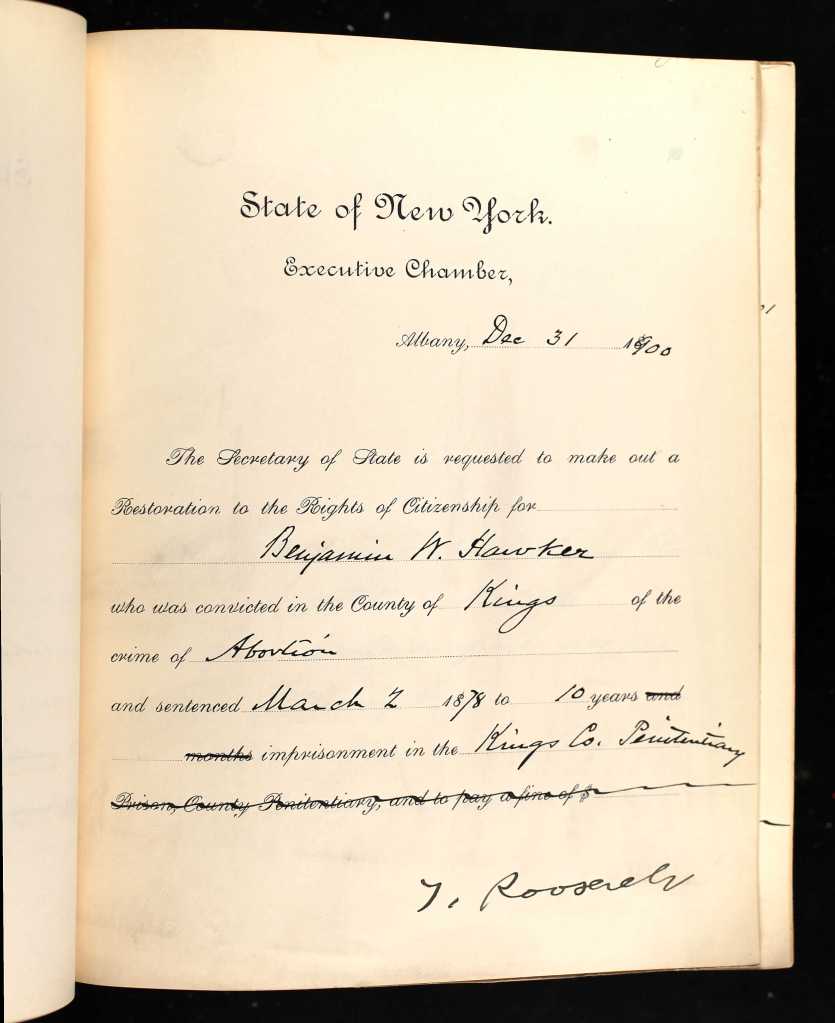 State of New York.
Executive Chamber,
Albany, Dec 31 1900
The Secretary of State is requested to make out a
Restoration to the Rights of Citizenship for
Benjamin W. Hawker
who was convicted in the County of Kings of the
crime of Abortion
and sentenced March 2 1878 to 10 years and
months imprisonment in the Kings Co. Penitentiary
Prison, County Penitentiary, and to pay a fine of $
T. Roosevelt